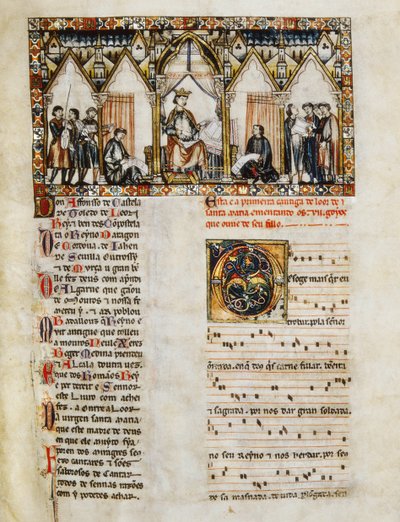 Don Affonso de Castela
de Toledo de Leon
Rey e ben des Compostela
ta o Reyno daragon
De Cordoua de Jahen
de Seuilla outrossy
e de Murça u gran ben
lle fez deus com aprendi
Do Algarue que gãou
de Mouros e nossa fe
meteu y e ar poblou
Badallouz que Reyno e
Muit antigue que tolleu
a mouros Neul e Xerez
Beger Medina prendeu
e Alcala doutra uez
E que dos Romãos Rey
e per dereit e Sennor
este Liuro com achei
fez a onrr e a loor
Da uirgen santa maria
que este madre de deus
en que ele muyto fia
poren dos miragres seus
fezo cantares e sões
saborosos de Cantar
todos de sennas razões
com y podedes achar.
Esta e a primeira cantiga de loor de
santa maria ementando os .VII. goyos
que ouue de seu fillo.
Des oge mais quer eu
trobar pola señor
onrrada. en que deus carne fillar. bẽeita
e sagrada. por nos dar gran soldada.
no seu Reyno e nos herdar. por seus
de sa masnada. de uida plõgada. sen